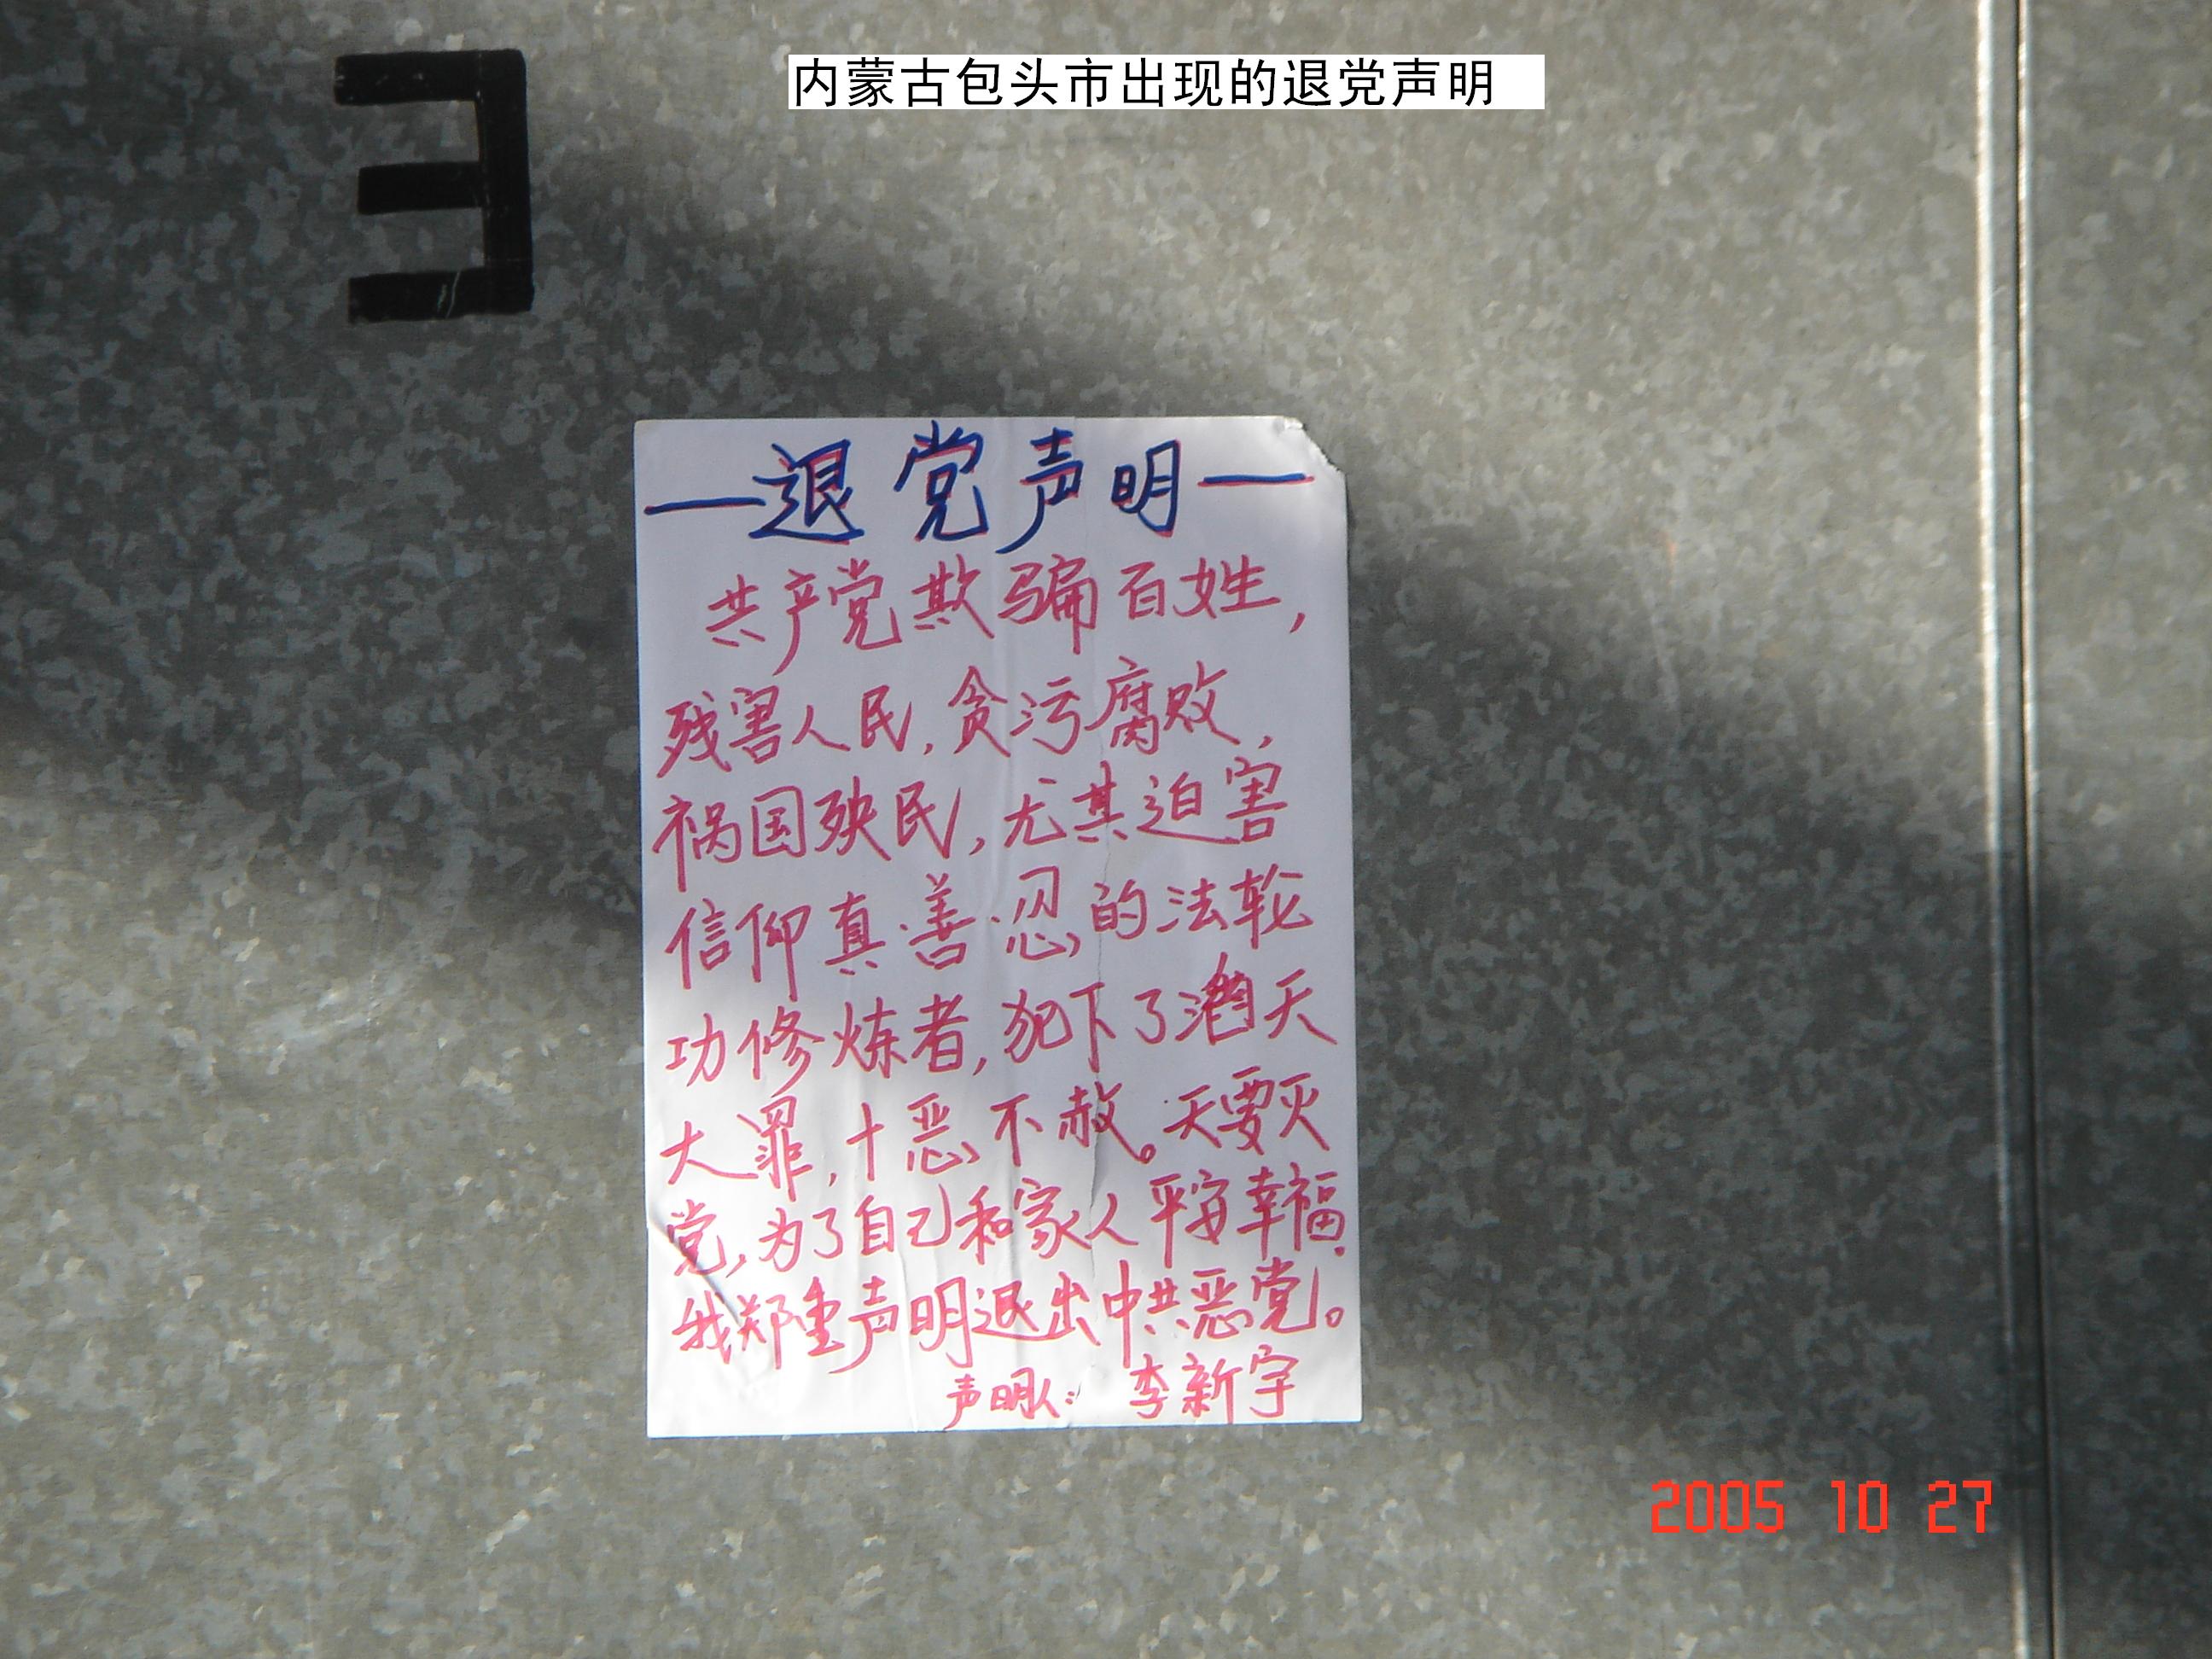 内蒙古包头市出现的退党声明
E
—退党声明—
共产党欺骗百姓,
残害人民,贪污腐败,
祸国殃民,尤其迫害
信仰真·善·忍的法轮
功修炼者,犯下了滔天
大罪,十恶不赦。天要灭
党,为了自己和家人平安幸福,
我郑重声明退出中共恶党。
声明人: 李新宇
2005 10 27